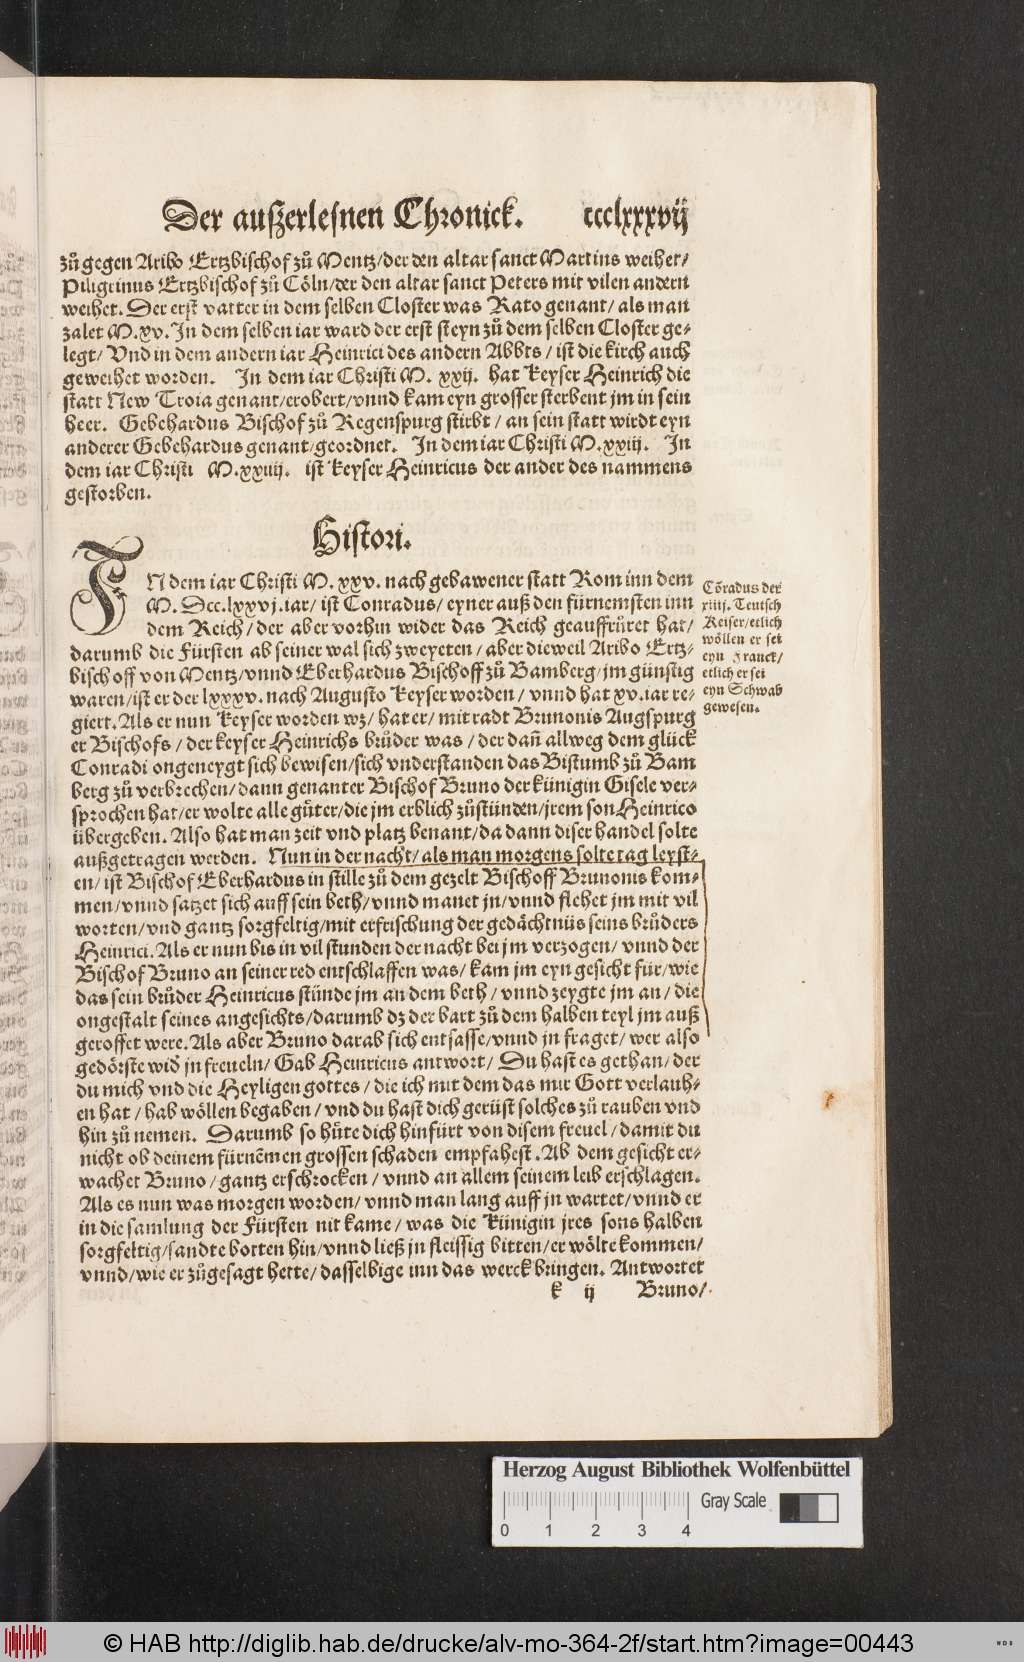 Der außerlesnen Chronick. ccclxxxvij
zů gegen Aribo Ertzbischof zů Mentz/der den altar sanct Martins weihet/
Piligrinus Ertzbischof zů Cöln/der den altar sanct Peters mit vilen andern
weihet. Der erst vatter in dem selben Closter was Rato genant/als man
zalet M.xv. In dem selben iar ward der erst steyn zů dem selben Closter ge-
legt/Vnd in dem andern iar Heinrici des andern Abbts/ist die kirch auch
geweihet worden. In dem iar Christi M. xxij. hat Keyser Heinrich die
statt New Troia genant/erobert/vnnd kam eyn grosser sterbent jm in sein
heer. Gebehardus Bischof zů Regenspurg stirbt/an sein statt wirdt eyn
anderer Gebehardus genant/geordnet. In dem iar Christi M.xxiij. In
dem iar Christi M.xxiiij. ist Keyser Heinricus der ander des nammens
gestorben.
Histori.
IN dem iar Christi M. xxv. nach gebawener statt Rom inn dem
M. Dcc.lxxvj.iar/ist Conradus/eyner auß den fürnemsten inn
dem Reich/der aber vorhin wider das Reich geauffrůret hat/
darumb die Fürsten ab seiner wal sich zweyeten/aber dieweil Aribo Ertz-
bischoff von Mentz/vnnd Eberhardus Bischoff zů Bamberg/jm günstig
waren/ist er der lxxxv. nach Augusto Keyser worden/vnnd hat xv.iar re-
giert. Als er nun Keyser worden wz/hat er/mit radt Brunonis Augspurg
er Bischofs/der keyser Heinrichs brůder was/der dañ allweg dem glück
Conradi ongeneygt sich bewisen/sich vnderstanden das Bistumb zů Bam
berg zů verbrechen/dann genanter Bischof Bruno der künigin Gisele ver-
sprochen hat/er wolte alle gůter/die jm erblich zůstünden/jrem son Heinrico
übergeben. Also hat man zeit vnd platz benant/da dann diser handel solte
außgetragen werden. Nun in der nacht/als man morgens solte tag leyst-
en/ist Bischof Eberhardus in stille zů dem gezelt Bischoff Brunonis kom-
men/vnnd satzet sich auff sein beth/vnnd manet jn/vnnd flehet jm mit vil
worten/vnd gantz sorgfeltig/mit erfrischung der gedächtnüs seins brůders
Heinrici. Als er nun bis in vil stunden der nacht bei jm verzogen/vnnd der
Bischof Bruno an seiner red entschlaffen was/kam jm eyn gesicht für/wie
das sein brůder Heinricus stünde jm an dem beth/vnnd zeygte jm an/die
ongestalt seines angesichts/darumb dz der bart zů dem halben teyl jm auß
geroffet were. Als aber Bruno darab sich entsasse/vnnd jn fraget/wer also
gedörste wid jn freueln/Gab Heinricus antwort/Du hast es gethan/der
du mich vnd die Heyligen gottes/die ich mit dem das mir Gott verlauh-
en hat/hab wöllen begaben/vnd du hast dich gerüst solches zů rauben vnd
hin zů nemen. Darumb so hůte dich hinfürt von disem freuel/damit du
nicht ob deinem fürnẽmen grossen schaden empfahest. Ab dem gesicht er-
wachet Bruno/gantz erschrocken/vnnd an allem seinem leib erschlagen.
Als es nun was morgen worden/vnnd man lang auff jn wartet/vnnd er
in die samlung der Fürsten nit kame/was die Künigin jres sons halben
sorgfeltig/sandte botten hin/vnnd ließ jn fleissig bitten/er wölte kommen/
vnnd/wie er zůgesagt hette/dasselbige inn das werck bringen. Antwortet
k ij Bruno/
Cõradus der
xiiij. Teutsch
Keiser/etlich
wöllen er sei
eyn Franck/
etlich er sei
eyn Schwab
gewesen.
Herzog August Bibliothek Wolfenbüttel
Gray Scale
0 1 2 3 4
© HAB http://diglib.hab.de/drucke/alv-mo-364-2f/start.htm?image=00443